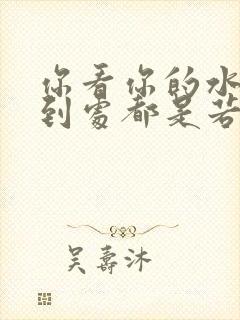 你看你的水
到處都是若
吴壽沐